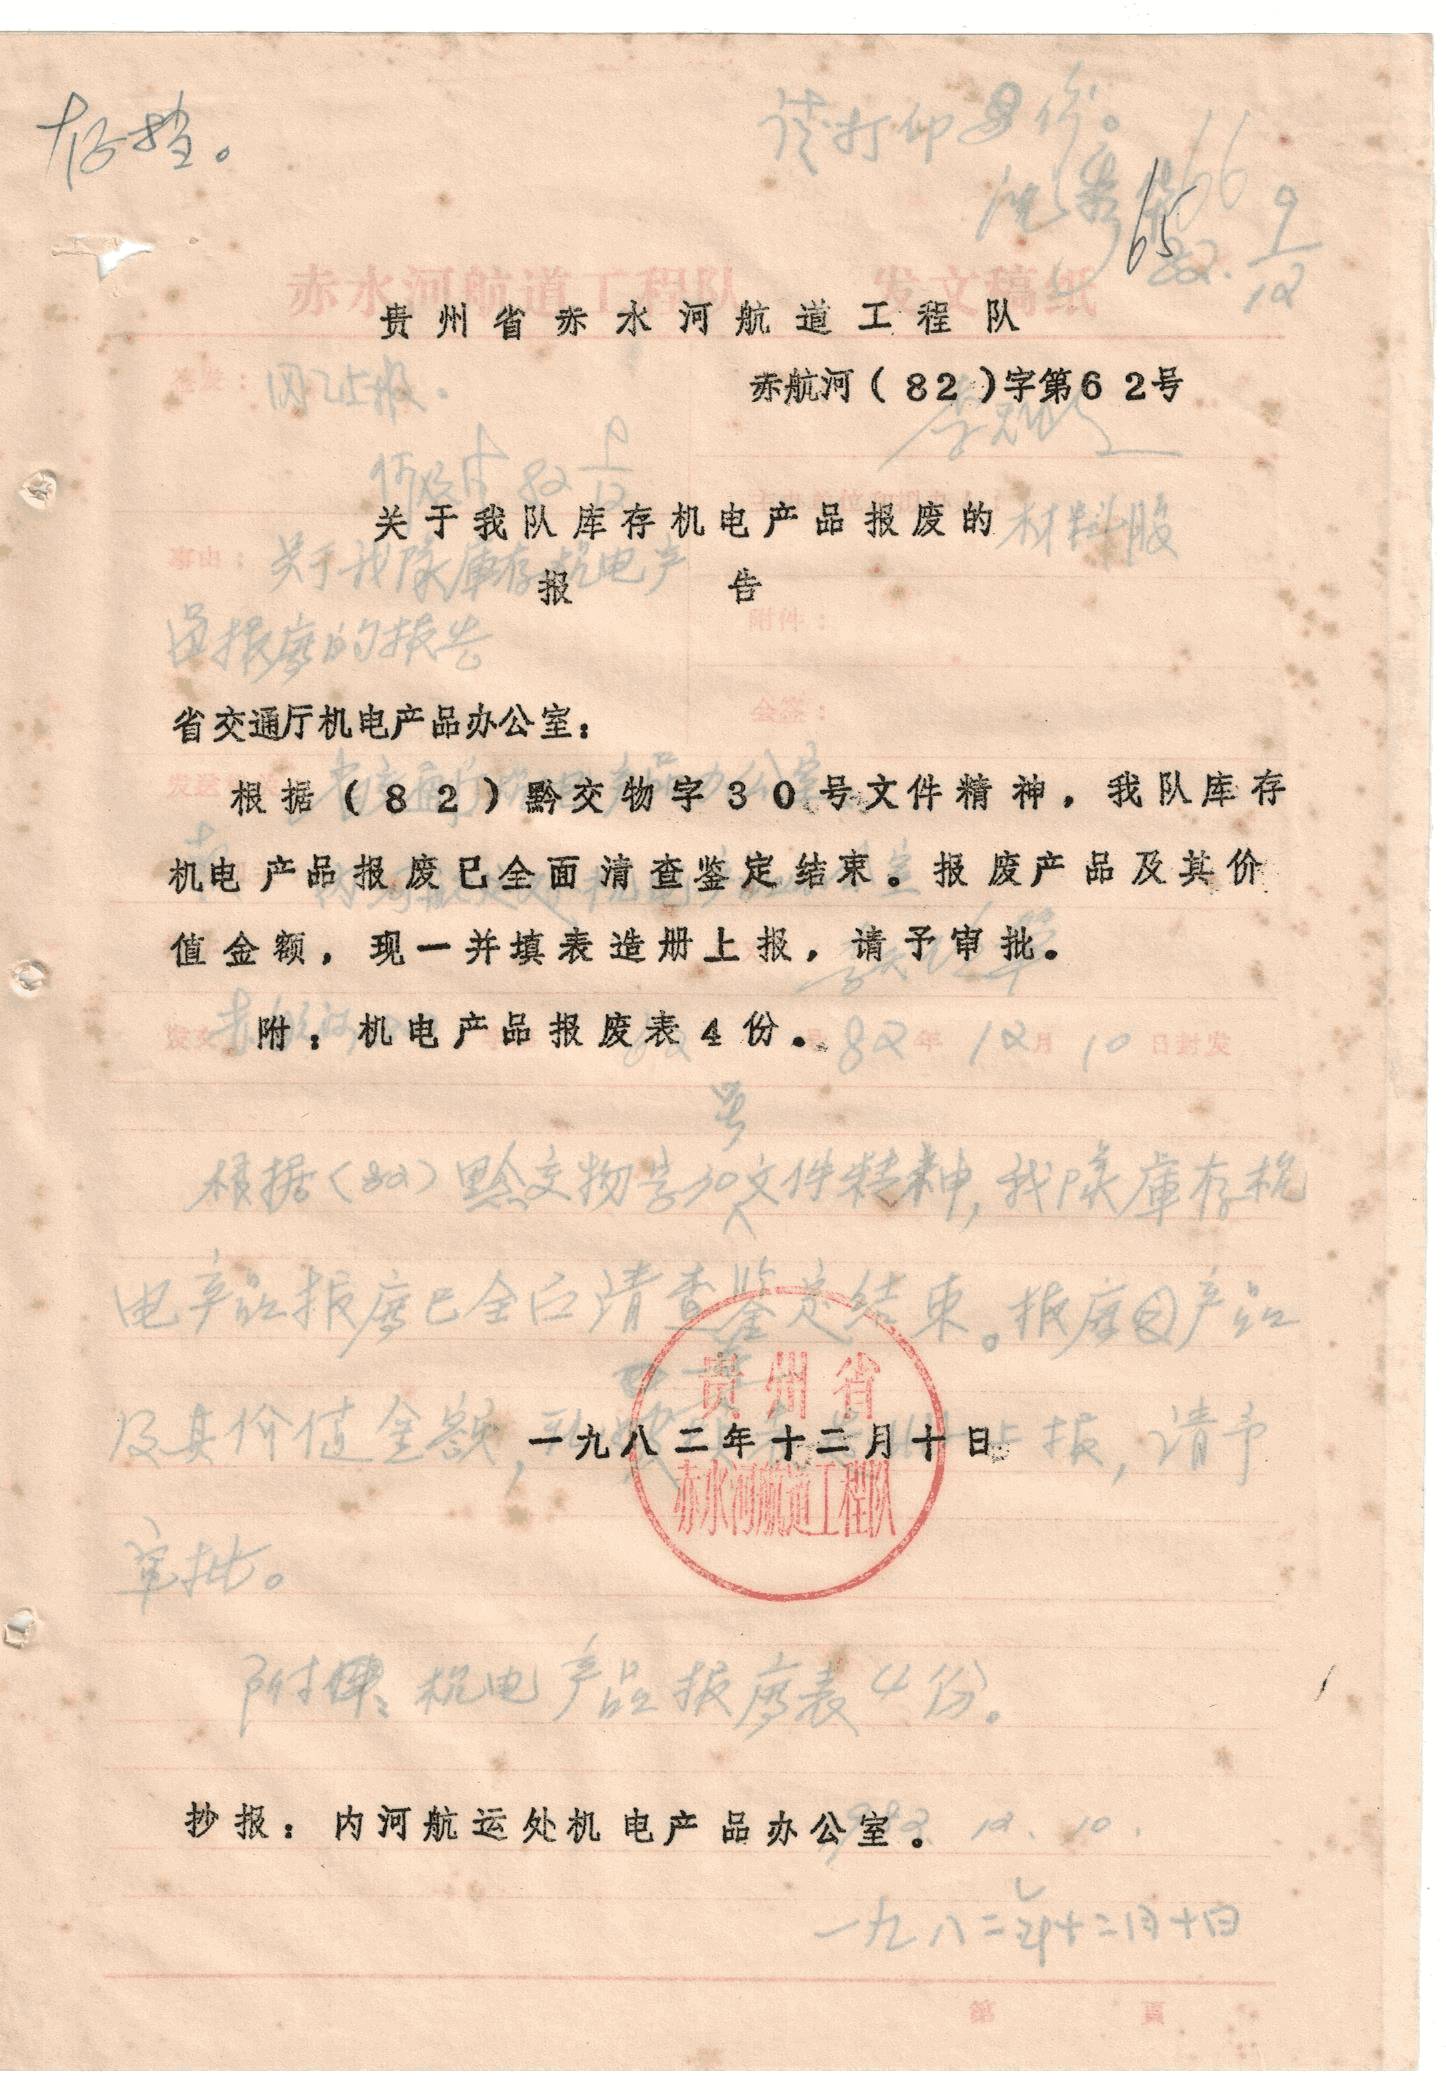 存档。
请打印
65
66
82.
9/12
赤水河航道工程队 发文稿纸
贵州省赤水河航道工程队
签发：
同意上报。
赤航河（82）字第62号
82 9/12
关于我队库存机电产品报废的
材料股
事由：关于我队庫存机电产
报 告
附件：
品报废的报告
会签：
省交通厅机电产品办公室：
根据（82）黔交物字30号文件精神，我队库存
机电产品报废已全面清查鉴定结束。报废产品及其价
值金额，现一并填表造册上报，请予审批。
附：机电产品报废表4份。
82年12月10日封发
号
根据（82）黔交物字30文件精神，我队庫存机
电产品报废已全面清查鉴定结束。报废产品
贵州省
及其价值金额，
上报，请予
一九八二年十二月十日
赤水河航道工程队
审批。
附：机电产品报废表4份。
抄报：内河航运处机电产品办公室。
12.10.
一九八二年十二月十日
第 頁